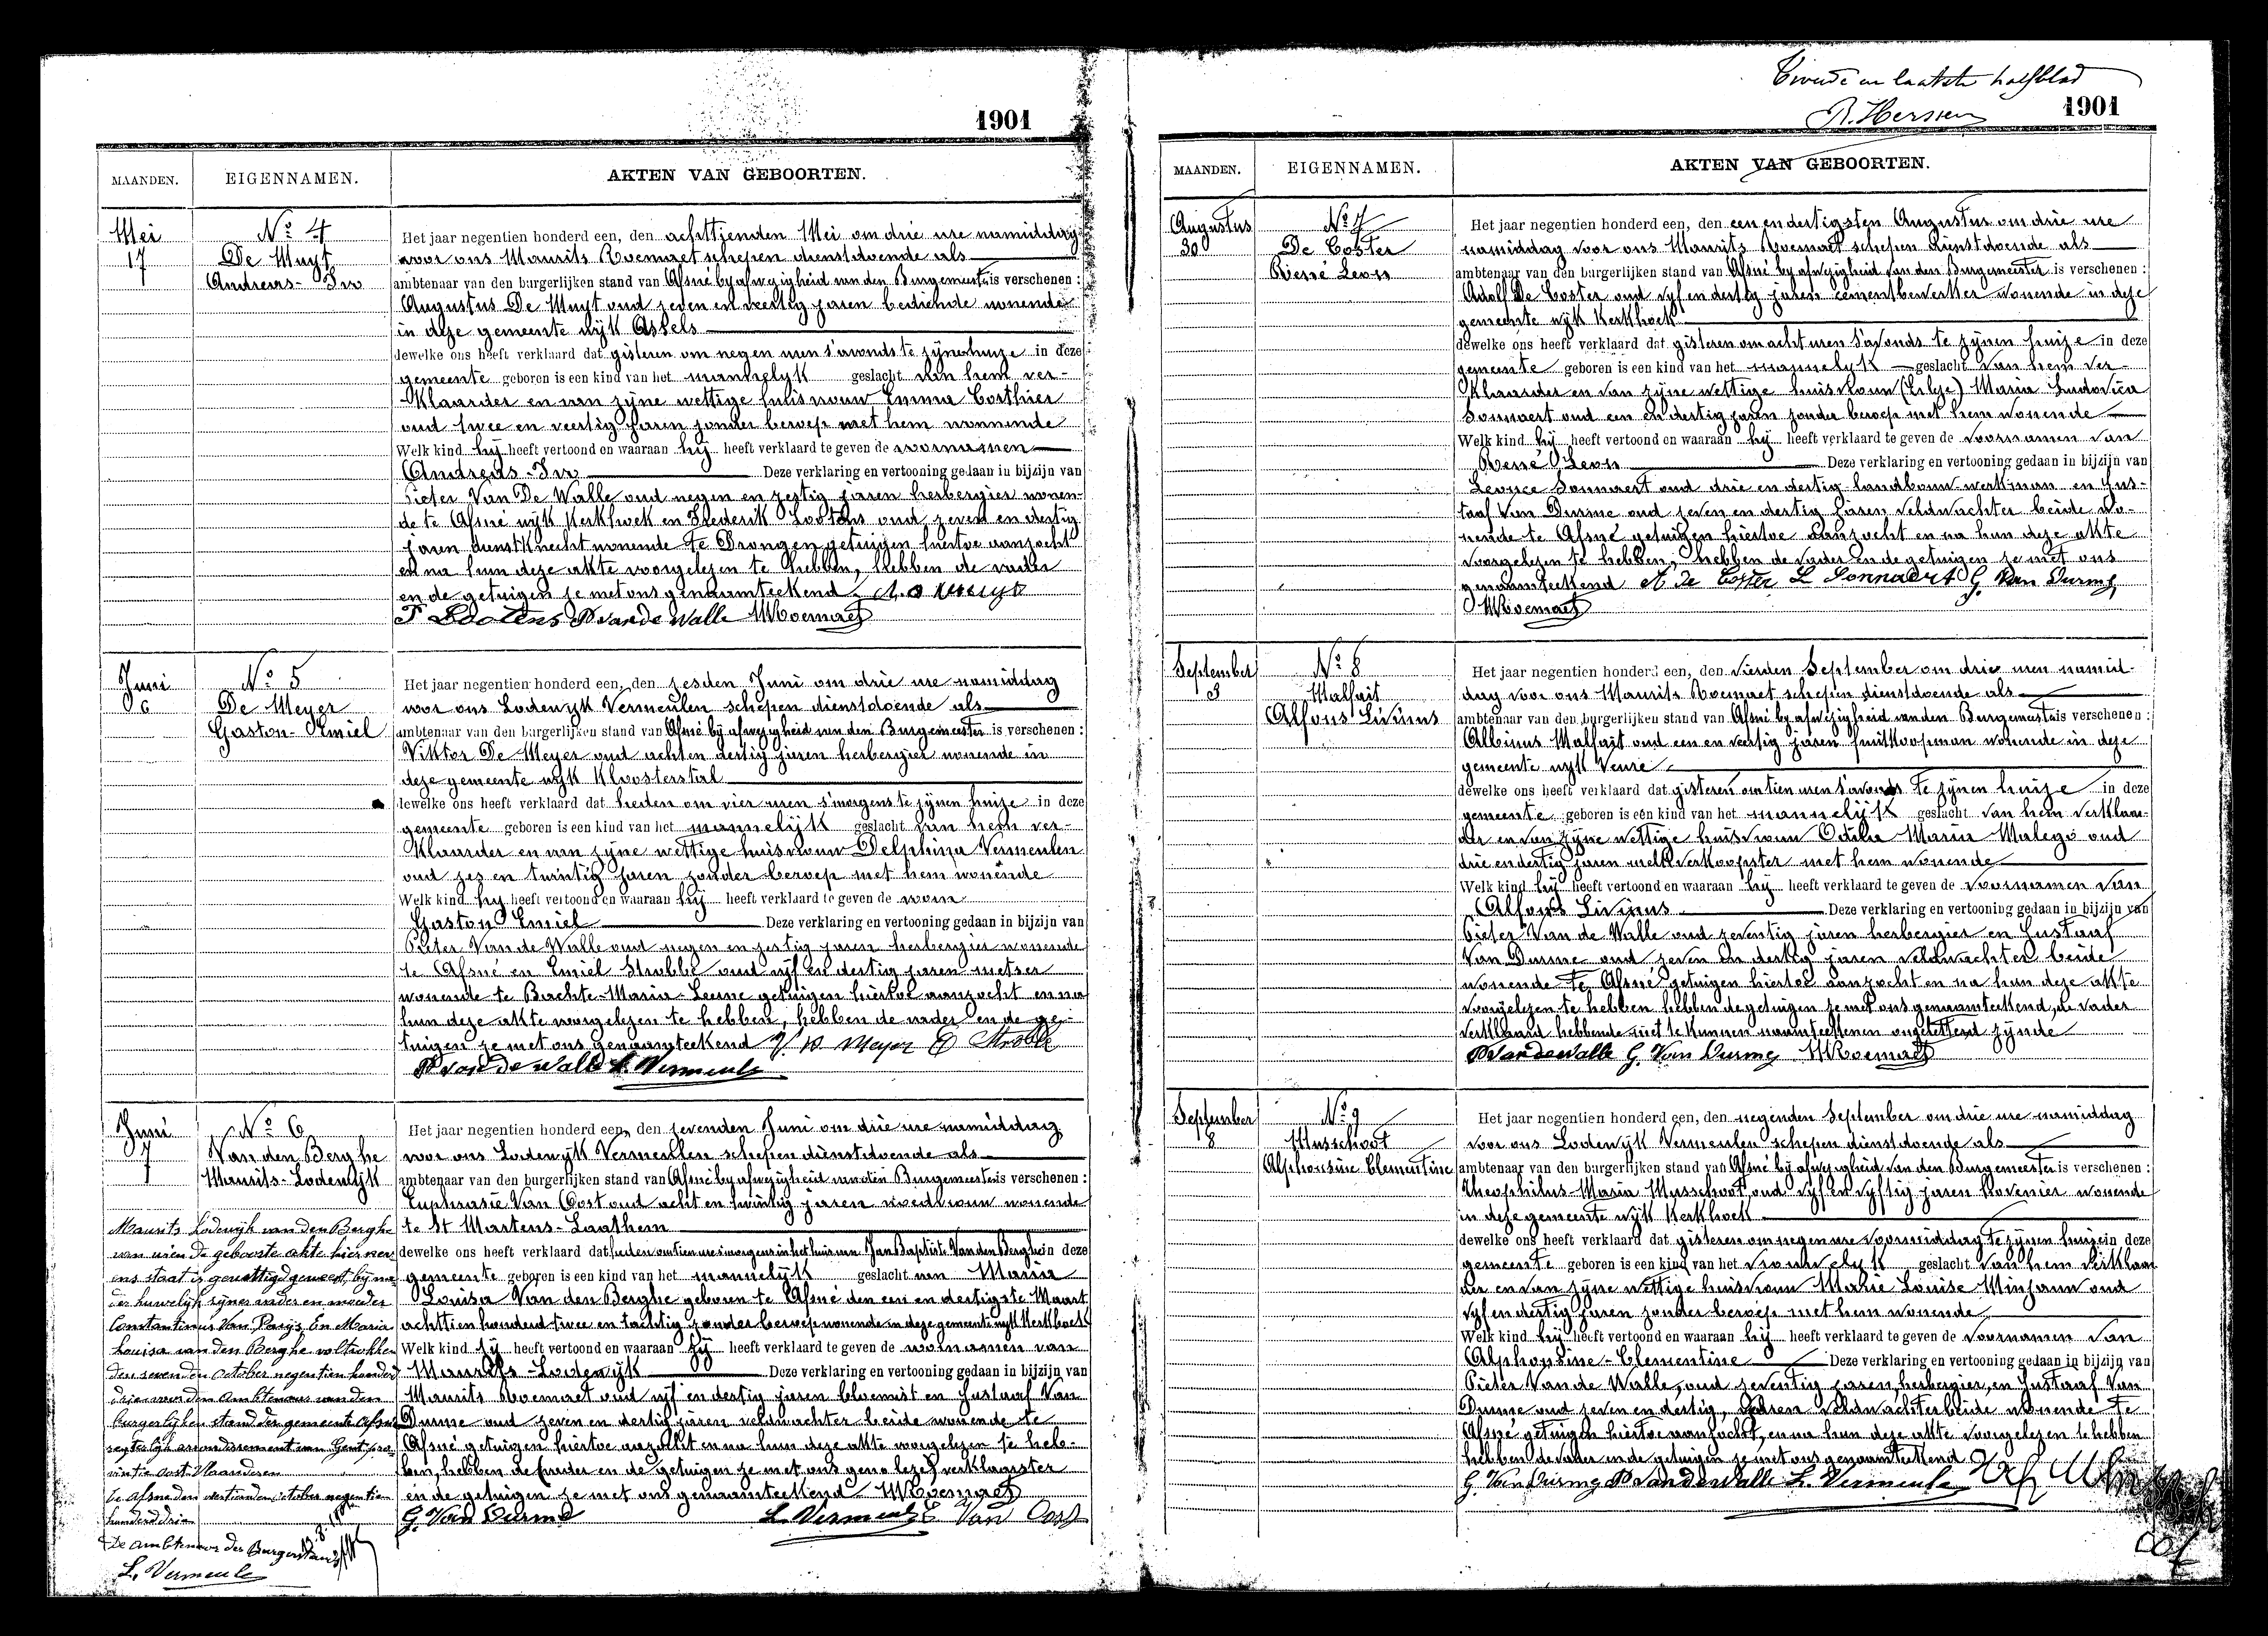 1901
MAANDEN. EIGENNAMEN. AKTEN VAN GEBOORTEN.
Mei
17
No 4
De Muyt
Andreas-
Het jaar negentien honderd een, den achttienden Mei om drie ure namiddag
voor ons Maurits Roemaet schepen dienstdoende als
ambtenaar van den burgerlijken stand van Afsné bij afwezigheid van den Burgemeester is verschenen :
Augustus De Muyt oud zeven en veertig jaren bediende wonende
in deze gemeente wijk Assels
dewelke ons heeft verklaard dat gisteren om negen uren 's avonds te zijnen huize in deze
gemeente geboren is een kind van het mannelijk geslacht van hem ver-
klaarder en van zijne wettige huisvrouw Emma Corthier
oud twee en veertig jaren zonder beroep met hem wonende
Welk kind hij heeft vertoond en waaraan hij heeft verklaard te geven de voornamen
Andreas- Deze verklaring en vertooning gedaan in bijzijn van
Pieter Van De Walle oud negen en zestig jaren herbergier wonen-
de te Afsné wijk Kerkhoek en Frederik Lootens oud zeven en dertig
jaren dienstknecht wonende te Drongen getuigen hiertoe aanzocht
en na hun deze akte voorgelezen te hebben, hebben de vader
en de getuigen ze met ons genaamteekend A. De Muyt
F Lootens P Van de Walle M Roemaet
Juni
6
No 5
De Meyer
Gaston-Emiel
Het jaar negentien honderd een, den zesden Juni om drie ure namiddag
voor ons Lodewijk Vermeulen schepen dienstdoende als
ambtenaar van den burgerlijken stand van Afsné bij afwezigheid van den Burgemeester is verschenen :
Viktor De Meyer oud acht en dertig jaren herbergier wonende in
deze gemeente wijk Kloosterstal
dewelke ons heeft verklaard dat heden om vier uren 's morgens te zijnen huize in deze
gemeente geboren is een kind van het mannelijk geslacht van hem ver-
klaarder en van zijne wettige huisvrouw Delphina Vermeulen
oud zes en twintig jaren zonder beroep met hem wonende
Welk kind hij heeft vertoond en waaraan hij heeft verklaard te geven de voorn
Gaston Emiel Deze verklaring en vertooning gedaan in bijzijn van
Pieter Van de Walle oud negen en zestig jaren herbergier wonende
te Afsné en Emiel Strobbe oud vijf en dertig jaren metser
wonende te Bachte-Maria-Leerne getuigen hiertoe aanzocht en na
hun deze akte voorgelezen te hebben, hebben de vader en de ge-
tuigen ze met ons genaamteekend V. D Meyer E Strobbe
P Van De Walle L. Vermeulen
Juni
7
No 6
Van den Berghe
Maurits-Lodewijk
Het jaar negentien honderd een, den zevenden Juni om drie ure namiddag
voor ons Lodewijk Vermeulen schepen dienstdoende als
ambtenaar van den burgerlijken stand van Afsné bij afwezigheid van den Burgemeester is verschenen :
Euphrasie Van Oost oud acht en twintig jaren vroedvrouw wonende
te St Martens-Laathem
dewelke ons heeft verklaard dat heden om tien ure 's morgens in het huis van Jan Baptiste Van den Berghe in deze
gemeente geboren is een kind van het mannelijk geslacht van Maria
Louisa Van den Berghe geboren te Afsné den een en dertigste Maart
achttien honderd twee en tachtig zonder beroep wonende in deze gemeente wijk Kerkhoek
Welk kind zij heeft vertoond en waaraan zij heeft verklaard te geven de voornamen van
Maurits-Lodewijk Deze verklaring en vertooning gedaan in bijzijn van
Maurits Roemaet oud vijf en dertig jaren bloemist en Gustaaf Van
Durme oud zeven en dertig jaren veldwachter beide wonende te
Afsné getuigen hiertoe aanzocht en na hun deze akte voorgelezen te heb-
ben, hebben de verklaarster
en de getuigen ze met ons genaamteekend M Roemaet
G. Van Durme L. Vermeulen E Van Oost
Maurits Lodewijk van den Berghe
van wien de geboorte akte hier nev
ens staat is gewettigd geweest, bij na
der huwelijk zijner vader en moeder
Constantinus Van Parijs En Maria
Louisa van den Berghe voltrokken
den zevenden october negentien honderd
drij voor den ambtenaar van den
burgerlijken stand der gemeente Afsné
regterlijk arrondissement van Gent pro
vintie oost Vlaanderen
te Afsné den october negentien
honderd drie
De ambtenaar der Burgerstand
L. Vermeulen
Tweede en laatste halfblad
R. Herssen
1901
MAANDEN. EIGENNAMEN. AKTEN VAN GEBOORTEN.
Augustus
30
No 7
De Coster
René Leon
Het jaar negentien honderd een, den een en dertigsten Augustus om drie ure
namiddag voor ons Maurits Roemaet schepen dienstdoende als
ambtenaar van den burgerlijken stand van Afsné bij afwezigheid van den Burgemeester is verschenen :
Adolf De Coster oud vijf en dertig jaren cementbewerker wonende in deze
gemeente wijk Kerkhoek
dewelke ons heeft verklaard dat gisteren om acht uren 's avonds te zijnen huize in deze
gemeente geboren is een kind van het mannelijk geslacht van hem ver-
klaarder en van zijne wettige huisvrouw Maria Ludovica
Sonnaert oud een en dertig jaren zonder beroep met hem wonende
Welk kind hij heeft vertoond en waaraan hij heeft verklaard te geven de voornamen van
René Leon Deze verklaring en vertooning gedaan in bijzijn van
Leonce Sonnaert oud drie en dertig landbouwwerkman en Gus-
taaf Van Durme oud zeven en dertig jaren veldwachter beide wo-
nende te Afsné getuigen hiertoe aanzocht en na hun deze akte
voorgelezen te hebben, hebben de vader en de getuigen ze met ons
genaamteekend A De Coster L Sonnaert G. Van Durme
M Roemaet
September
3
No 8
Malfait
Alfons Livinus
Het jaar negentien honderd een, den vierden September om drie uren namid-
dag voor ons Maurits Roemaet schepen dienstdoende als
ambtenaar van den burgerlijken stand van Afsné bij afwezigheid van den Burgemeester is verschenen :
Albinus Malfait oud een en veertig jaren fruitkoopman wonende in deze
gemeente wijk Veure
dewelke ons heeft verklaard dat gisteren om tien uren 's avonds te zijnen huize in deze
gemeente geboren is een kind van het mannelijk geslacht van hem verklaar-
der en van zijne wettige huisvrouw Odilia Maria Malego oud
drie en dertig jaren melkverkoopster met hem wonende
Welk kind hij heeft vertoond en waaraan hij heeft verklaard te geven de voornamen van
Alfons Livinus Deze verklaring en vertooning gedaan in bijzijn van
Pieter Van de Walle oud zeventig jaren herbergier en Gustaaf
Van Durme oud zeven en dertig jaren veldwachter beide
wonende te Afsné getuigen hiertoe aanzocht en na hun deze akte
voorgelezen te hebben hebben de getuigen ze met ons genaamteekend, de vader
verklaard hebbende niet te kunnen naamteekenen ongeletterd zijnde
P Van de Walle G. Van Durme M Roemaet
September
8
No 9
Musschoot
Alphonsine Clementine
Het jaar negentien honderd een, den negenden September om drie ure namiddag
voor ons Lodewijk Vermeulen schepen dienstdoende als
ambtenaar van den burgerlijken stand van Afsné bij afwezigheid van den Burgemeester is verschenen :
Theophilus-Maria Musschoot, oud vijf en vijftig jaren hovenier wonende
in deze gemeente wijk Kerkhoek
dewelke ons heeft verklaard dat gisteren om negen ure voormiddag te zijnen huize in deze
gemeente geboren is een kind van het vrouwelijk geslacht van hem verklaar
der en van zijne wettige huisvrouw Marie Louise Minjauw oud
vijf en dertig jaren zonder beroep met hem wonende
Welk kind hij heeft vertoond en waaraan hij heeft verklaard te geven de voornamen van
Alphonsine-Clementine Deze verklaring en vertooning gedaan in bijzijn van
Pieter Van de Walle, oud zeventig jaren, herbergier, en Gustaaf Van
Durme oud zeven en dertig, jaren veldwachter beide wonende te
Afsné getuigen hiertoe aanzocht, en na hun deze akte voorgelezen te hebben
hebben de vader en de getuigen ze met ons genaamteekend
G. Van Durme P Van de Walle L. Vermeulen